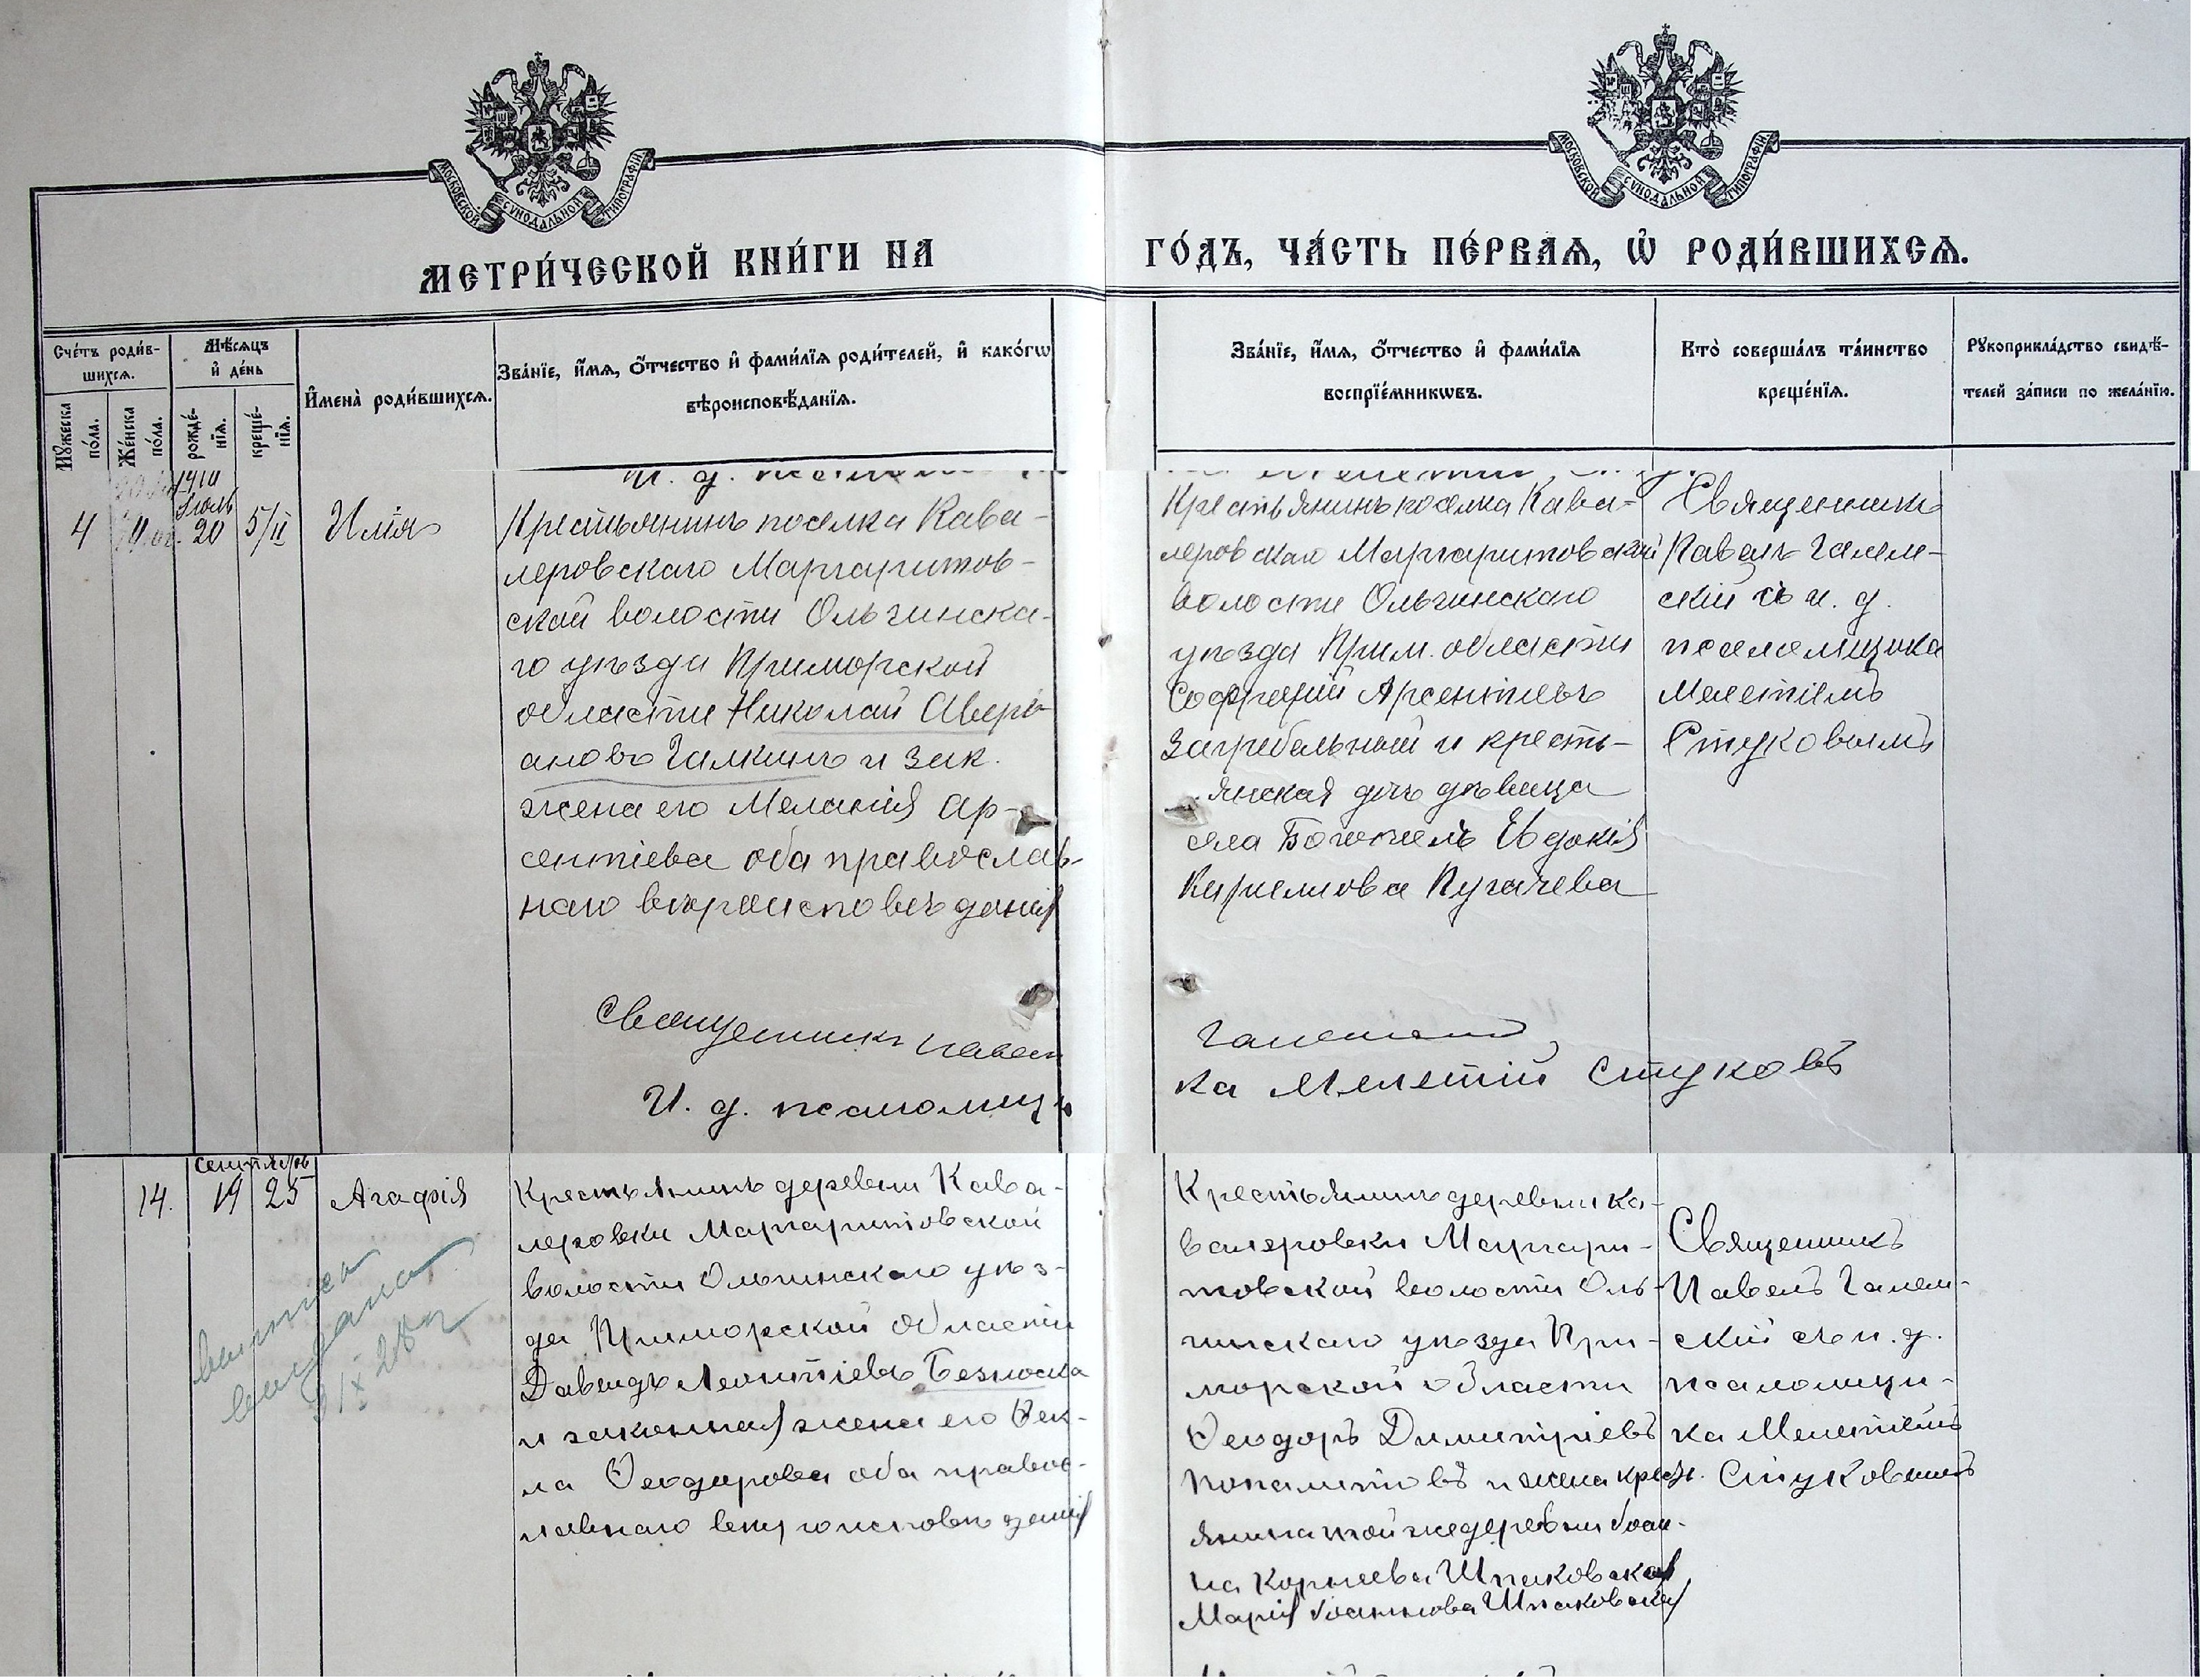 МОСКОВСКОЙ СѴНОДАЛЬНОЙ ТИПОГРАФІИ
МОСКОВСКОЙ СѴНОДАЛЬНОЙ ТИПОГРАФІИ
МЕТРИ́ЧЕСКОЙ КНИ́ГИ НА
ГО́ДЪ, ЧА́СТЬ ПЕ́РВАѦ, Ѡ҆ РОДИ́ВШИХСѦ.
Сче́тъ роди́в-
шихсѧ.
Мѣ́сѧцъ
и҆ де́нь
Мꙋ́жеска
по́ла.
Же́нска
по́ла.
рожде́-
нїѧ.
креще́-
нїѧ.
И҆мена̀ роди́вшихсѧ.
Зва́нїе, и҆́мѧ, ѻ҆́тчество и҆ фами́лїѧ роди́телей, и҆ како́гѡ
вѣроисповѣ́данїѧ.
Зва́нїе, и҆́мѧ, ѻ҆́тчество и҆ фами́лїѧ
воспрїе́мникѡвъ.
Кто̀ соверша́лъ та́инство
креще́нїѧ.
Рꙋкоприкла́дство свидѣ́-
телей за́писи по жела́нїю.
И. д.
1910
Іюль
4 20 5/II Илія
Крестьянинъ поселка Кава-
леровскаго Маргаритов-
ской волости Ольгинска-
го уѣзда Приморской
области Николай Аверь
ановъ Галкинъ и зак.
жена его Меланія Ар-
сентіева оба православ-
наго вѣроисповѣданія
Священникъ Павел
И. д. псаломщи
Крестьянинъ поселка Кава-
леровскаго Маргаритовской
волости Ольгинскаго
уѣзда Прим. области
Софроній Арсентіевъ
Загребельный и кресть-
янская дочь дѣвица
села Богополь Евдокія
Кириллова Пугачева
ка Мелетій Стуковъ
Священникъ
Павелъ Галем-
скій съ и. д.
псаломщика
Мелетіемъ
Стуковымъ
сентябрь
14. 19 25 Агафія
выписка
выдана
Крестьянинъ деревни Кава-
леровки Маргаритовской
волости Ольгинскаго уѣз-
да Приморской области
Давидъ Леонтіевъ Безноска
и законная жена его Ѳек-
ла Ѳеодорова оба правос-
лавнаго вѣроисповѣданія
Крестьянинъ деревни Ка-
валеровки Маргари-
товской волости Оль-
гинскаго уѣзда При-
морской области
Ѳеодоръ Димитріевъ
и жена крестъ.
янина той же деревни Іоан-
на Корнеева Шпаковская
Марія Іоаннова Шпаковская
Священникъ
Павелъ Галем-
скій съ и. д.
псаломщи-
ка Мелетіемъ
Стуковымъ